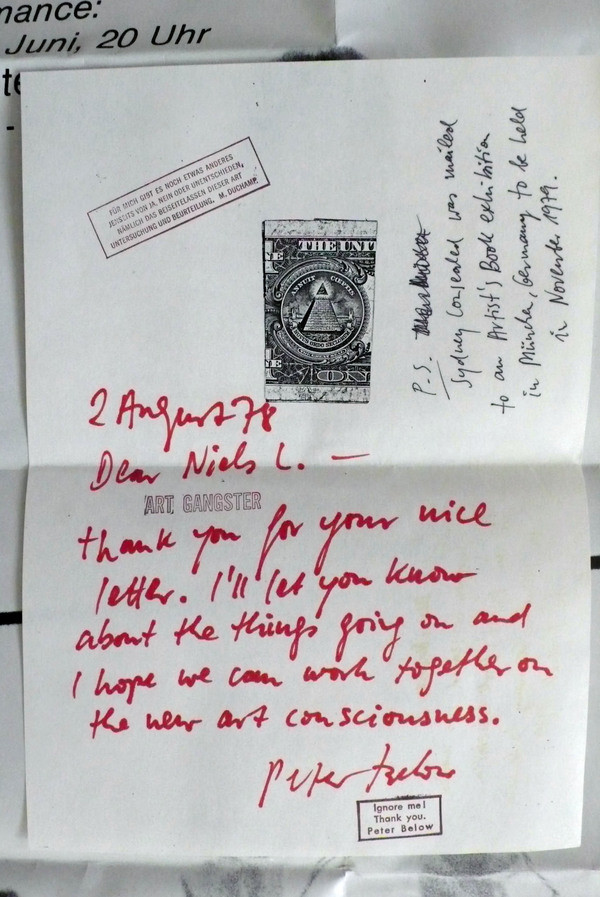 mance:
Juni, 20 Uhr
te
FÜR MICH GIBT ES NOCH ETWAS ANDERES
JENSEITS VON JA, NEIN ODER UNENTSCHIEDEN,
NÄMLICH DAS BEISEITELASSEN DIESER ART
UNTERSUCHUNG UND BEURTEILUNG. M. DUCHAMP.
THE UNIT
ANNUIT CŒPTIS
NOVUS ORDO SECLORUM
ON
P.S.
Sydney Consealed was mailed
to an Artist's Book exhibition
in München, Germany to be held
in November 1979.
2 August 78
Dear Niels L. —
ART GANGSTER
thank you for your nice
letter. I'll let you know
about the things going on and
I hope we can work together on
the new art consciousness.
Peter Below
Ignore me!
Thank you.
Peter Below